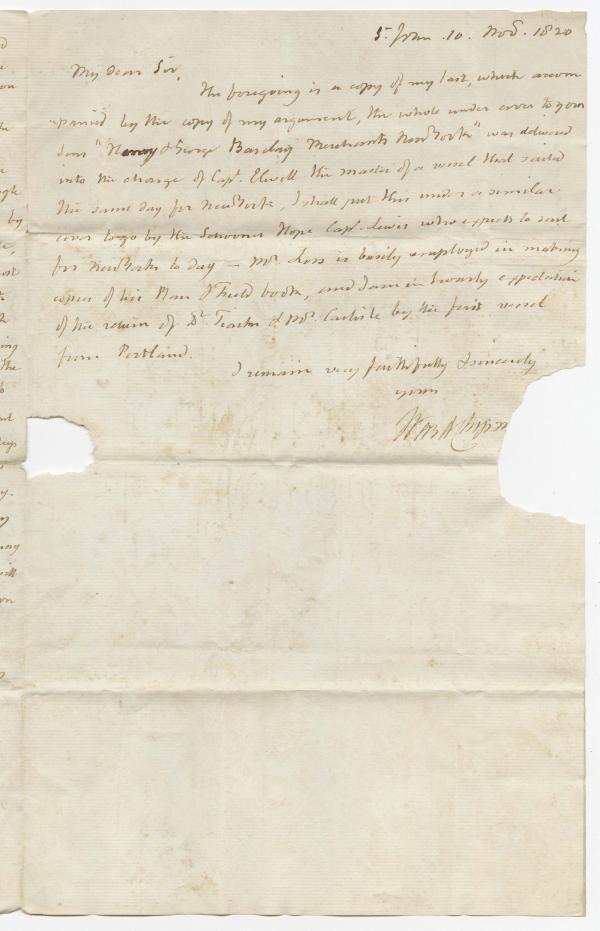 St. John .10. Novr. 1820
My dear Sir,
The foregoing is a copy of my last, which accom
panied by the copy of my argument, the whole under cover to your
Sons "Henry & George Barclay Merchants New York" was delivered
into the charge of Capt. Elwell the master of a vessel that sailed
the same day for New York, I shall put this under a similar
cover to go by the Schooner Hope Capt. Lewis who expects to sail
for New York to day — Mr. Loss is busily employed in making
copies of his Plan & Field book, and I am in hourly expectation
of the return of Dr. Tiarks & Mr. Carlisle by the first vessel
from Portland.
I remain very faithfully & sincerely
yours